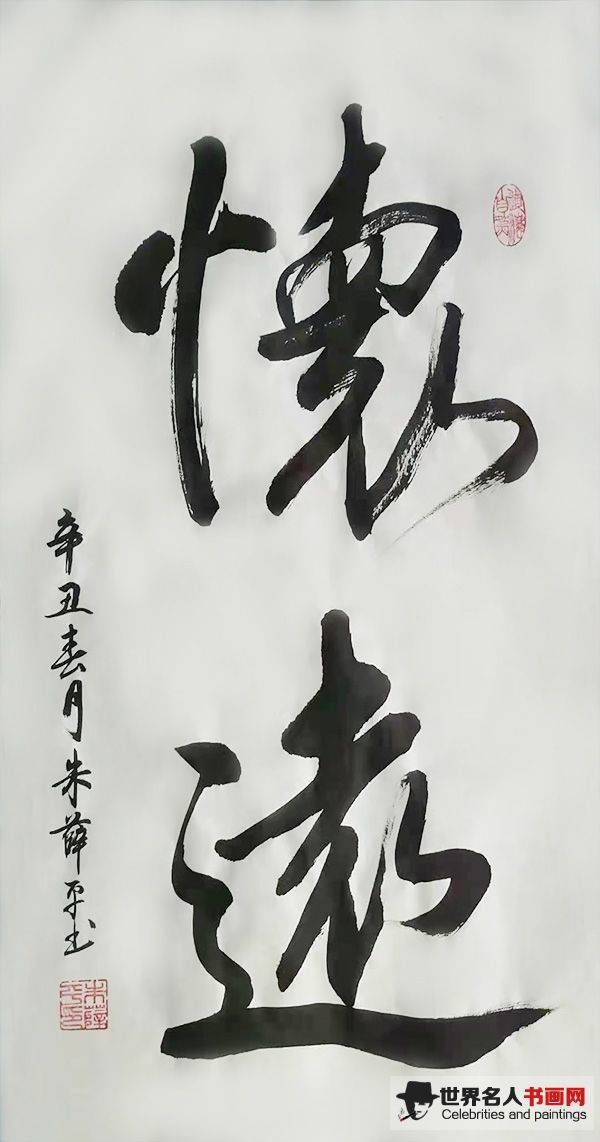 懷遠
辛丑春月朱薛平书
世界名人书画网
Celebrities and paintings